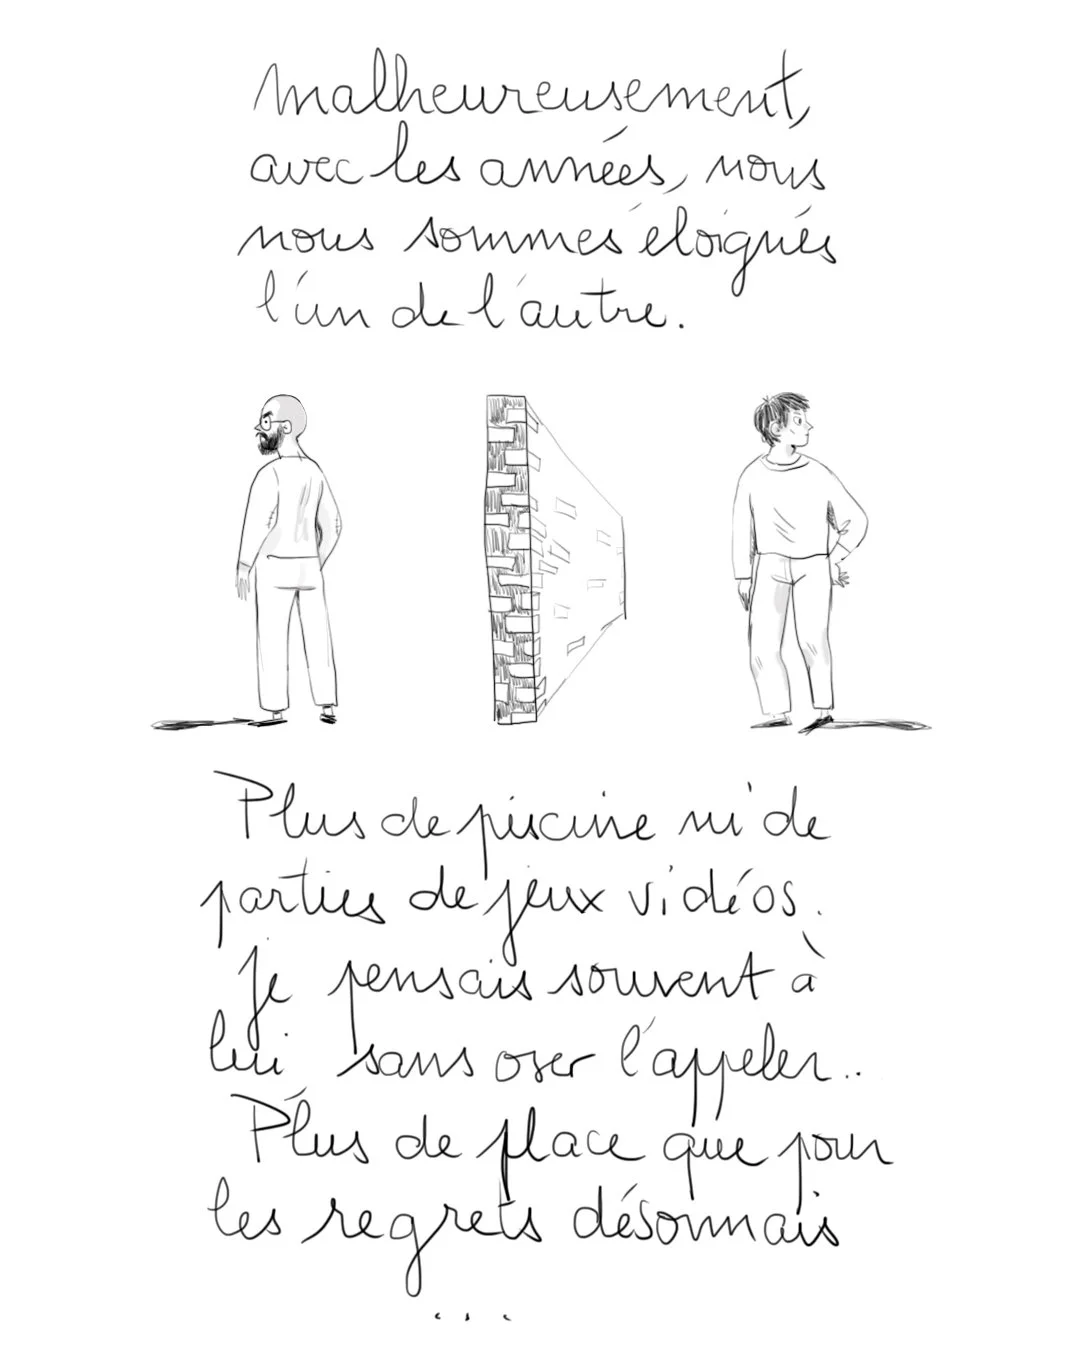 malheureusement,
avec les années, nous
nous sommes éloignés
l'un de l'autre.
Plus de piscine ni de
parties de jeux vidéos.
Je pensais souvent à
lui sans oser l'appeler..
Plus de place que pour
les regrets désormais
...